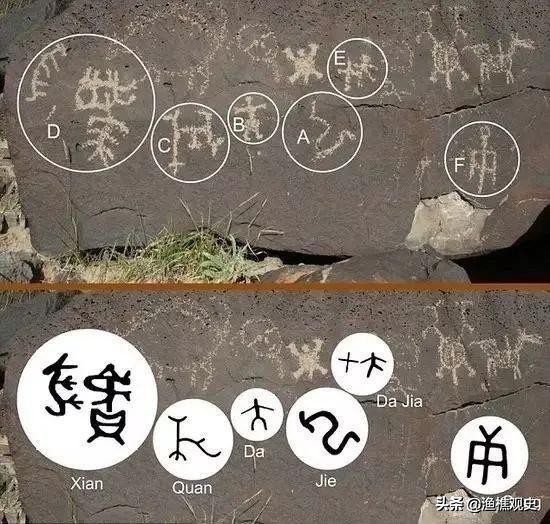 E
D
B
A
C
F
Da Jia
Da
Xian
Quan
Jie
头条 @渔樵观史